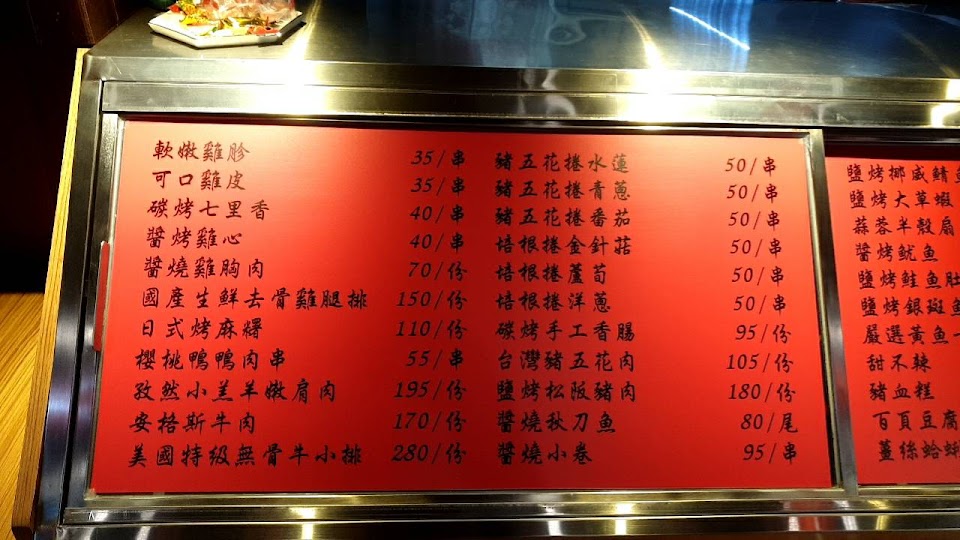 軟嫩雞胗 35/串
可口雞皮 35/串
碳烤七里香 40/串
醬烤雞心 40/串
醬燒雞胸肉 70/份
國產生鮮去骨雞腿排 150/份
日式烤麻糬 110/份
櫻桃鴨鴨肉串 55/串
孜然小羔羊嫩肩肉 195/份
安格斯牛肉 170/份
美國特級無骨牛小排 280/份
豬五花捲水蓮 50/串
豬五花捲青蔥 50/串
豬五花捲番茄 50/串
培根捲金針菇 50/串
培根捲蘆筍 50/串
培根捲洋蔥 50/串
碳烤手工香腸 95/份
台灣豬五花肉 105/份
鹽烤松阪豬肉 180/份
醬燒秋刀魚 80/尾
醬燒小卷 95/串
鹽烤挪威鯖
鹽烤大草蝦
蒜蓉半殼扇
醬烤魷魚
鹽烤鮭魚肚
鹽烤銀斑魚
嚴選黃魚一
甜不辣
豬血糕
百頁豆腐
薑絲蛤蜊